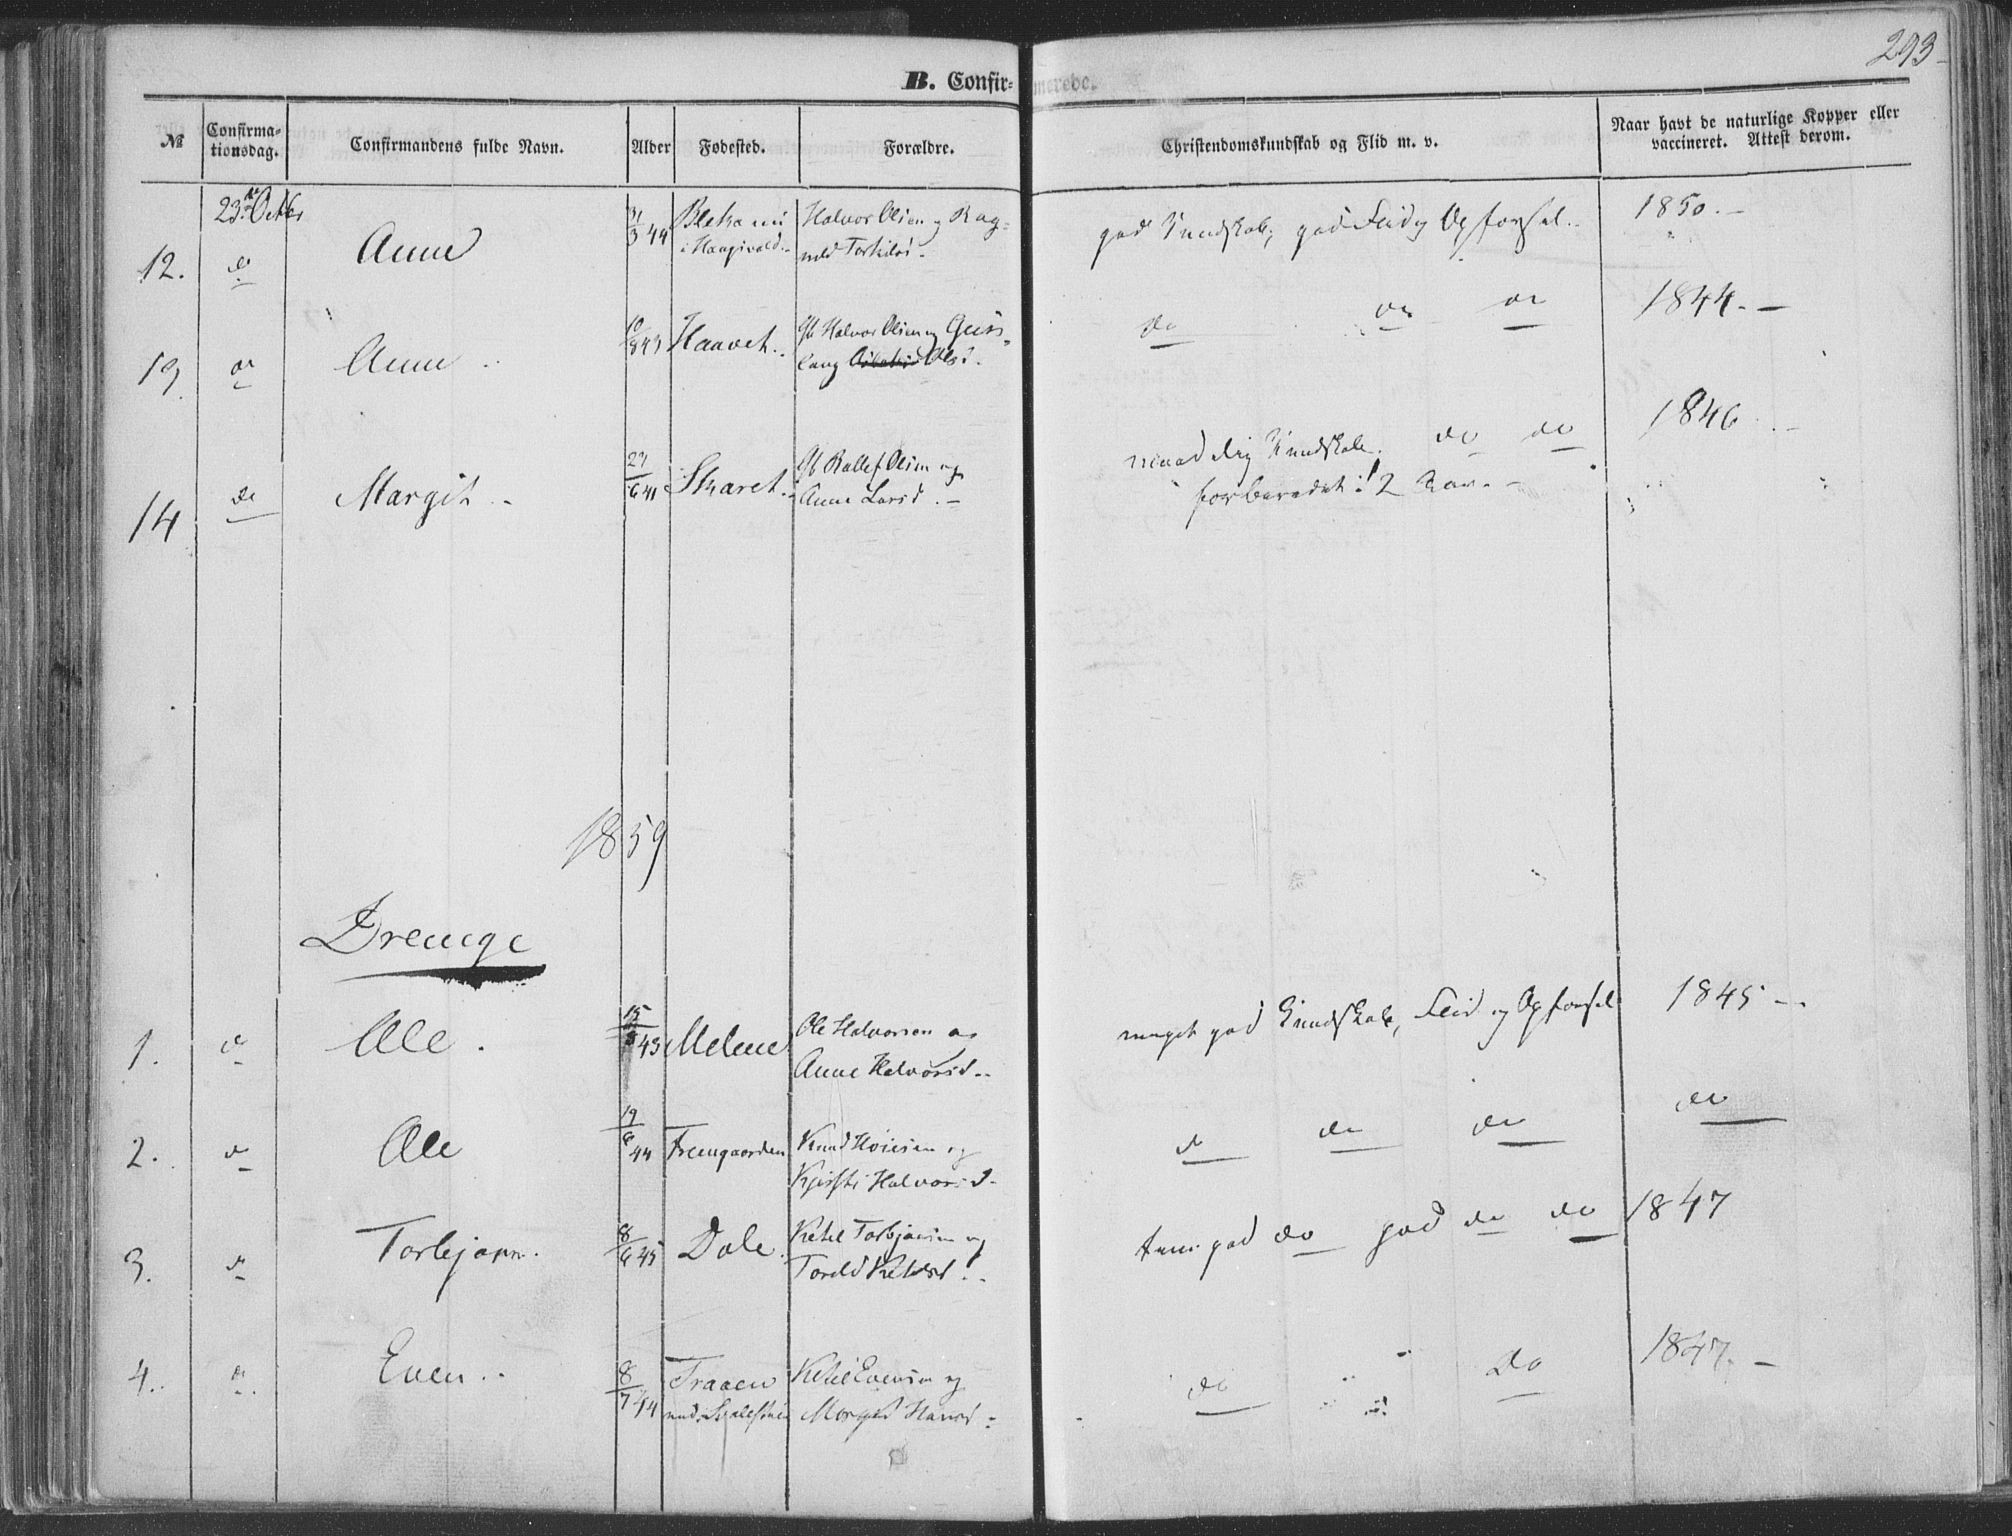 293
B. Confir-
merede.
№ Confirma-tionsdag. Confirmandens fulde Navn. Alder Fødested. Forældre. Christendomskundskab og Flid m. v. Naar havt de naturlige Kopper eller vaccineret. Attest derom.
23de Octbr
12. do Anne 31/3 44 Halvor Olsen og Rag-
god Kundskab, god Flid og Opførsel. 1850. -
13 do Anne 10/8 43 Haavet. Halvor Olsen og Gun-
laug Olsd.
do do do 1844. -
14 do Margit 29/6 41 Skaret. Rollef Olsen og
Anne Larsd. -
maadelig Kundskab. do do 1846
forberedet i 2 Aar. -
1859
Drenge
1. do Ole. 15/8 43 Melene Ole Halvorsen og
Anne Halvorsd.
meget god Kundskab, Flid og Opførsel 1845 -
2. do Ole 19/6 44 Knud
Kjersti Halvorsd.
do do do do
3. do Torbjørn. 8/6 45 Dale. Ketil Torbjønsen og
god do god do do 1847
4. do Even. 8/7 44 Traaen Ketil Evensen og
Margit Hansd.
do do 1847. -